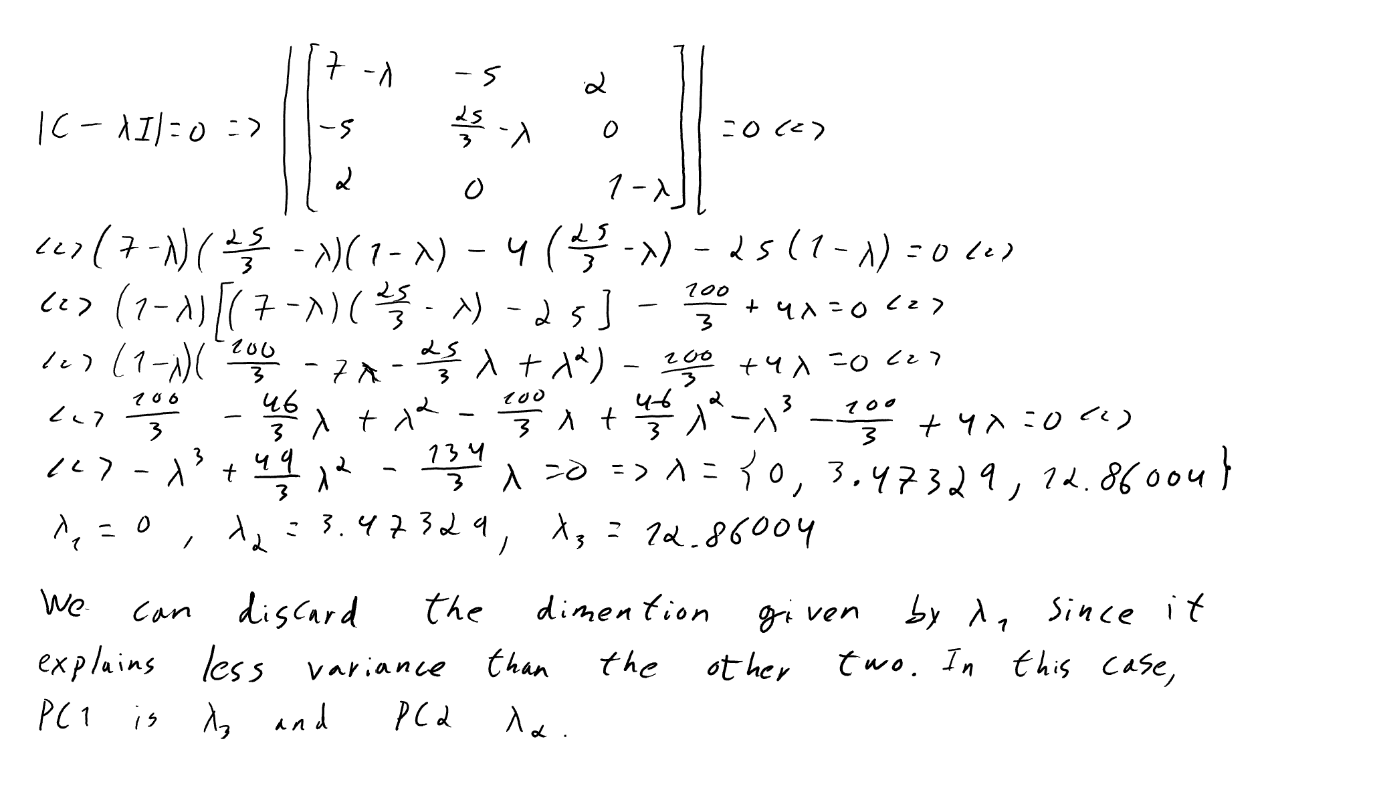 |C - λI| = 0 => |[7-λ -5 2; -5 25/3-λ 0; 2 0 1-λ]| = 0 <=>
<=> (7-λ)(25/3 - λ)(1-λ) - 4(25/3 - λ) - 25(1-λ) = 0 <=>
<=> (1-λ)[(7-λ)(25/3 - λ) - 25] - 100/3 + 4λ = 0 <=>
<=> (1-λ)(100/3 - 7λ - 25/3 λ + λ²) - 100/3 + 4λ = 0 <=>
<=> 100/3 - 46/3 λ + λ² - 100/3 λ + 46/3 λ² - λ³ - 100/3 + 4λ = 0 <=>
<=> -λ³ + 49/3 λ² - 134/3 λ = 0 => λ = {0, 3.47329, 12.86004}
λ₁ = 0, λ₂ = 3.47329, λ₃ = 12.86004
We can discard the dimention given by λ₁ since it
explains less variance than the other two. In this case,
PC1 is λ₃ and PC2 λ₂.